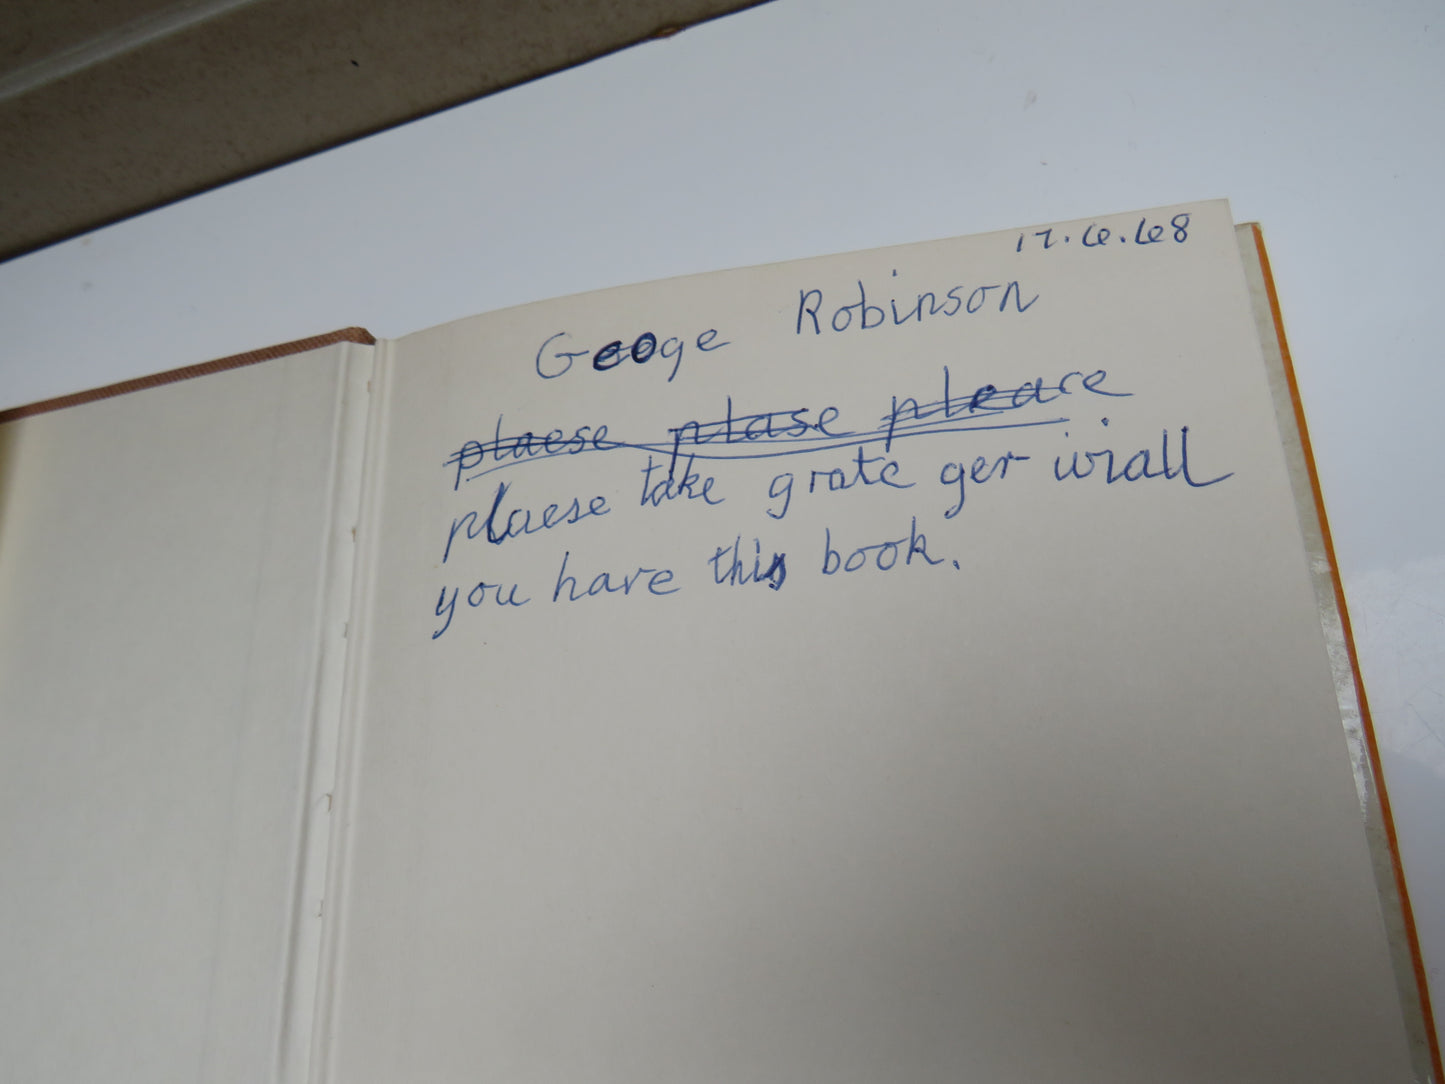 17.6.68
Geoge Robinson
plaese plase pleare
plaese take grate ger wiall
you have this book.